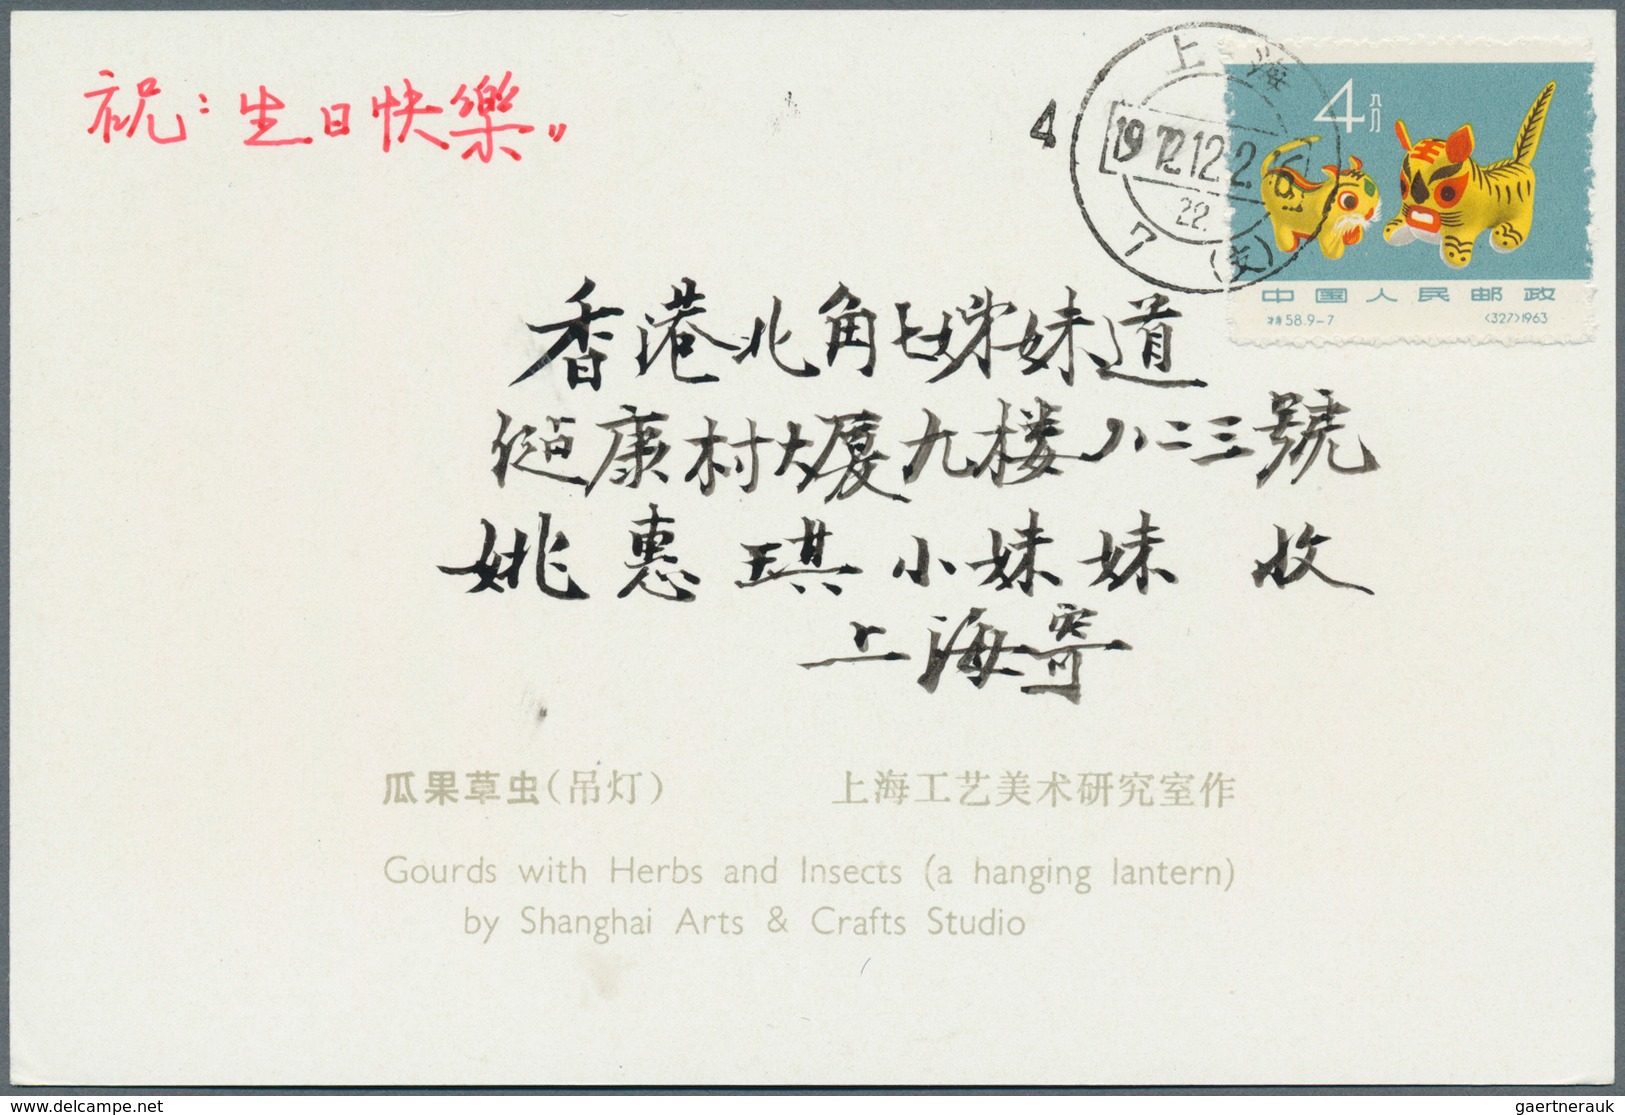 祝:生日快樂〃
4
上海
1972.12.2
22
7(支)
4八分
中国人民邮政
特58.9-7 <327>1963
香港北角七姊妹道
健康村大厦九楼八二三號
姚惠琪小妹妹 收
上海寄
瓜果草虫(吊灯) 上海工艺美术研究室作
Gourds with Herbs and Insects (a hanging lantern)
by Shanghai Arts & Crafts Studio
www.delcampe.net
gaertnerauk